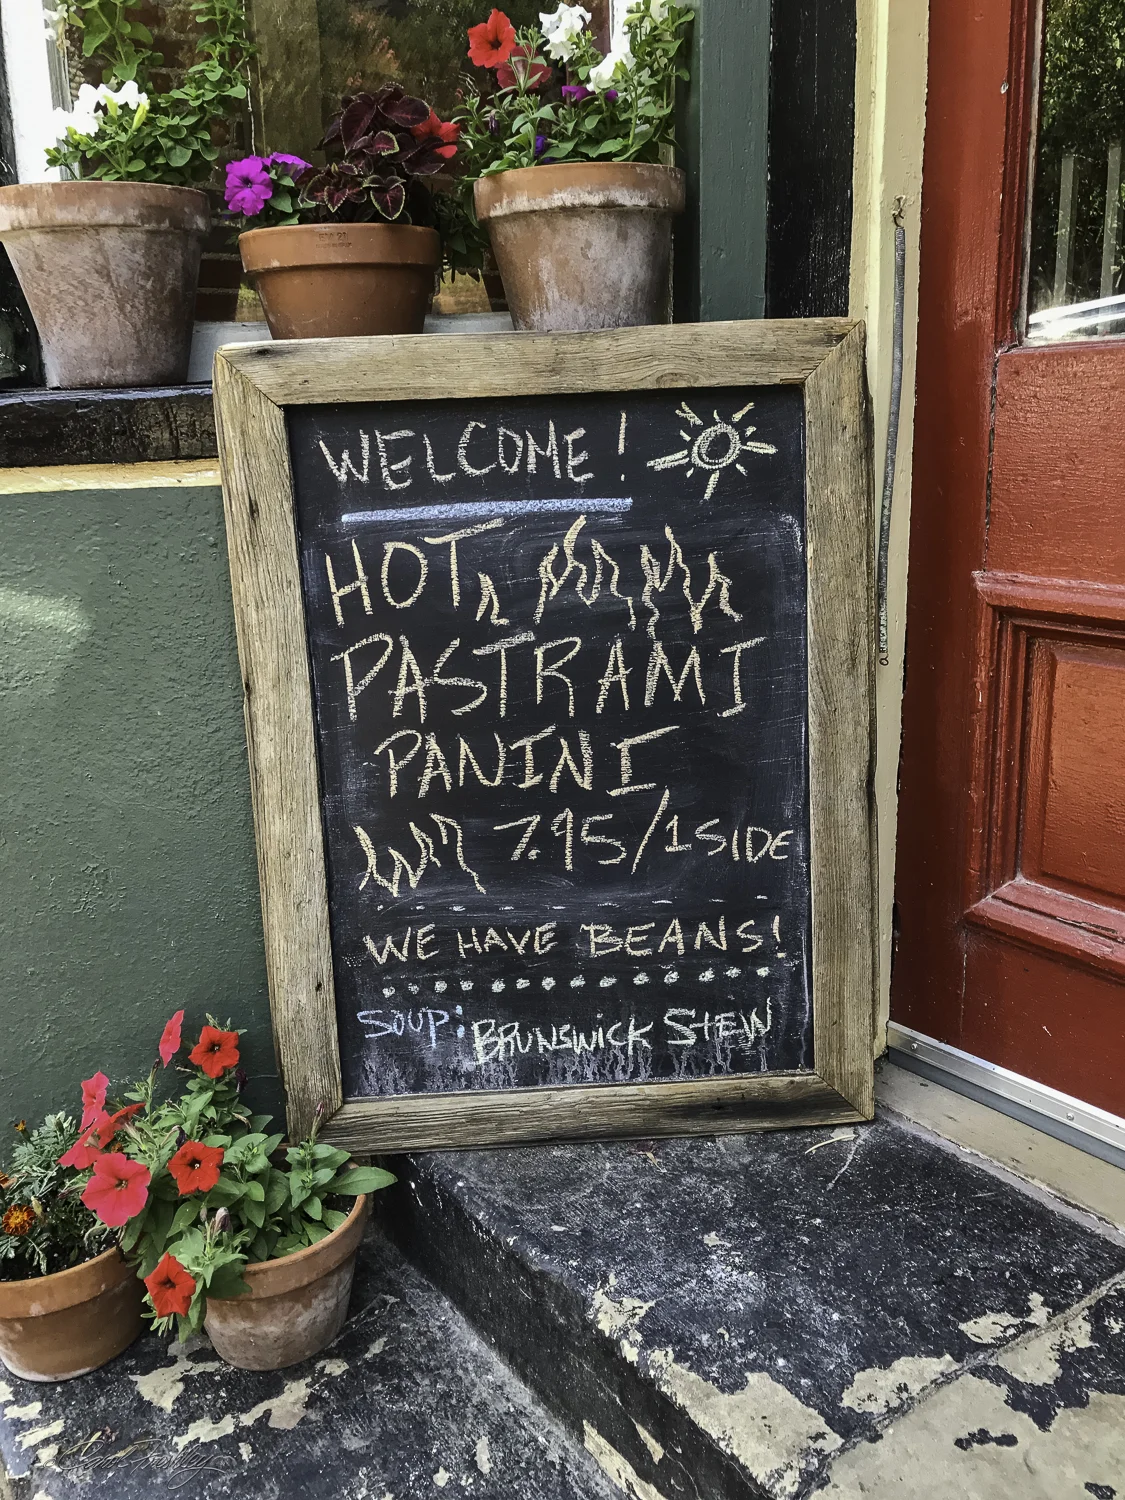 WELCOME!
HOT
PASTRAMI
PANINI
7.95/1 SIDE
WE HAVE BEANS!
SOUP: BRUNSWICK STEW